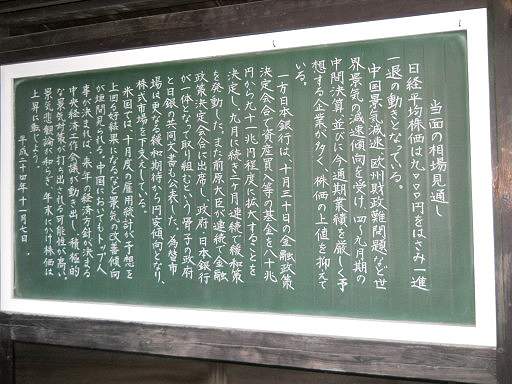 当面の相場見通し
日経平均株価は九〇〇〇円をはさみ一進
一退の動きとなっている。
中国景気減速、欧州財政難問題など世
界景気の減速傾向を受け、四～九月期の
中間決算並びに今通期業績を厳しく予
想する企業が多く、株価の上値を抑えて
いる。
一方日本銀行は、十月三十日の金融政策
決定会合で資産買入等の基金を八十兆
円から九十一兆円程度に拡大することを
決定し、九月に続き二ヶ月連続で緩和策
を発動した。また前原大臣が連続で金融
政策決定会合に出席し、政府・日本銀行
が一体となって取り組むという骨子の政府
と日銀の共同文書も公表した。為替市
場は更なる緩和期待から円安傾向となり、
株式市場を下支えしている。
米国では、十月度の雇用統計が予想を
上回る好結果になるなど景気の改善傾向
が垣間見られる。中国においてもトップ人
事が決まれば、来年の経済方針が決まる
中央経済工作会議が動き出し、積極的
な景気対策が打ち出される可能性が高い。
景気悲観論が和らぎ、年末にかけ株価は
上昇に転じよう。
平成二十四年十一月七日